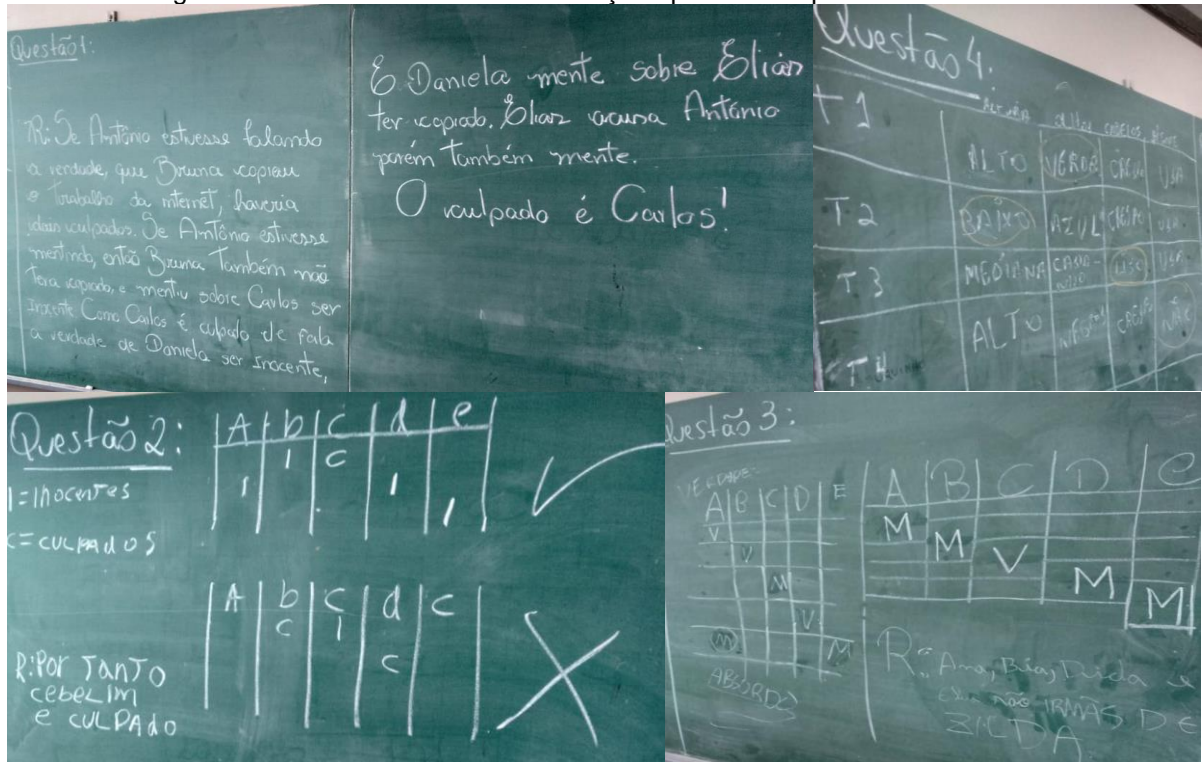 Questão 1:
R: Se Antônio estivesse falando
a verdade, que Bruna copiou
o trabalho da internet, haveria
dois culpados. Se Antônio estivesse
mentindo, então Bruna também não
teria copiado, e mentiu sobre Carlos ser
inocente Como Carlos é culpado ele fala
a verdade de Daniela ser inocente,
E Daniela mente sobre Elian
ter copiado. Elian acusa Antônio
porém também mente.
O culpado é Carlos!
Questão 4:
T1
ALTO VERDE CRESPO USA
T2
BAIXO AZUL CRESPO USA
T3
MEDIANA CASTA-
NHO LISO USA
T4
ALTO CRESPO NÃO
Questão 2:
A b c d e
I = Inocentes
C = CULPADOS
I I C I I
A b c d c
C I C
R: POR TANTO
CEBELIM
e CULPADO
Questão 3:
VERDADE:
A B C D E
V
V
M
V
M M
ABSURDO
A B C D e
M
M
V
M
M
R: Ana, Bia,
não IRMÃS DE
ZILDA